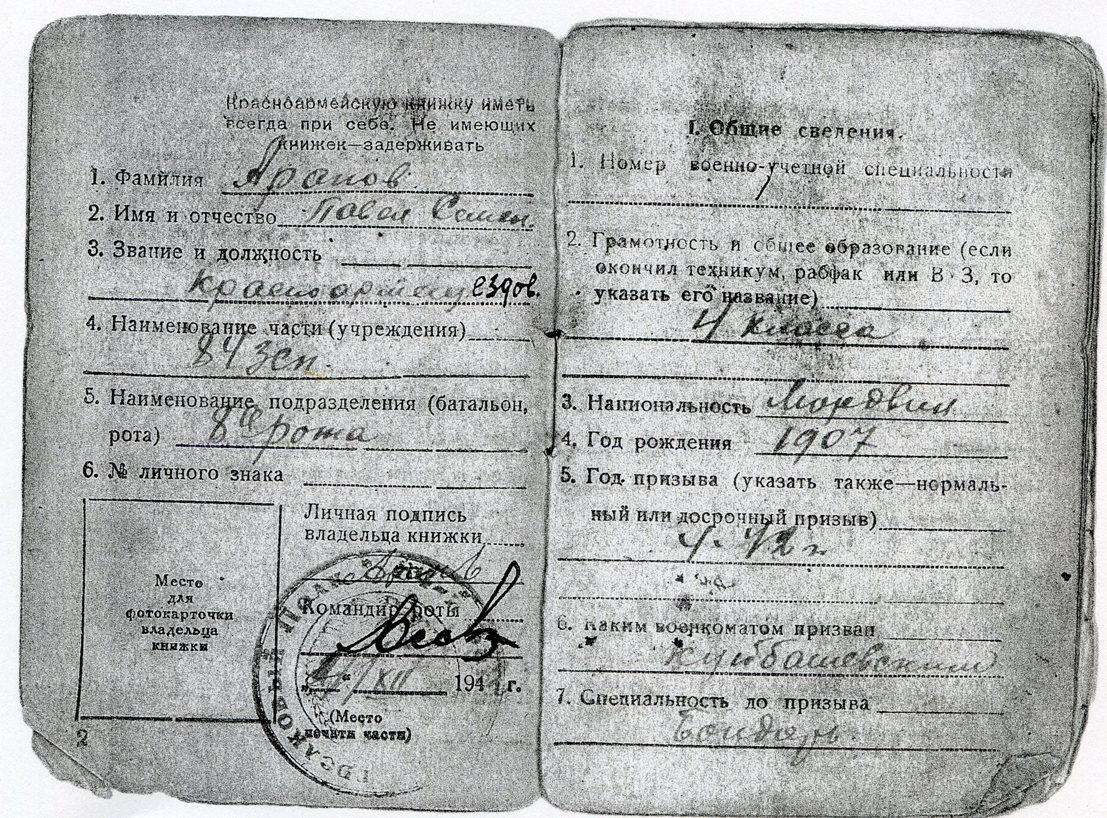 Красноармейскую книжку иметь
всегда при себе. Не имеющих
книжек—задерживать
1. Фамилия Арапов
2. Имя и отчество Павел Семен.
3. Звание и должность
Красноармеец ездов.
4. Наименование части (учреждения)
84 зсп.
5. Наименование подразделения (батальон,
рота) 8ая рота
6. № личного знака
Личная подпись
владельца книжки
Место
для
фотокарточки
владельца
книжки
Командир роты
"/XII 194 г.
(Место
печати части)
2
I. Общие сведения.
1. Номер военно-учетной специальности
2. Грамотность и общее образование (если
окончил техникум, рабфак или В З, то
указать его название)
4 класса
3. Национальность Мордвин
4. Год рождения 1907
5. Год призыва (указать также—нормаль-
ный или досрочный призыв)
42 г
6. Каким военкоматом призван
Куйбышевским
7. Специальность до призыва
Бондарь